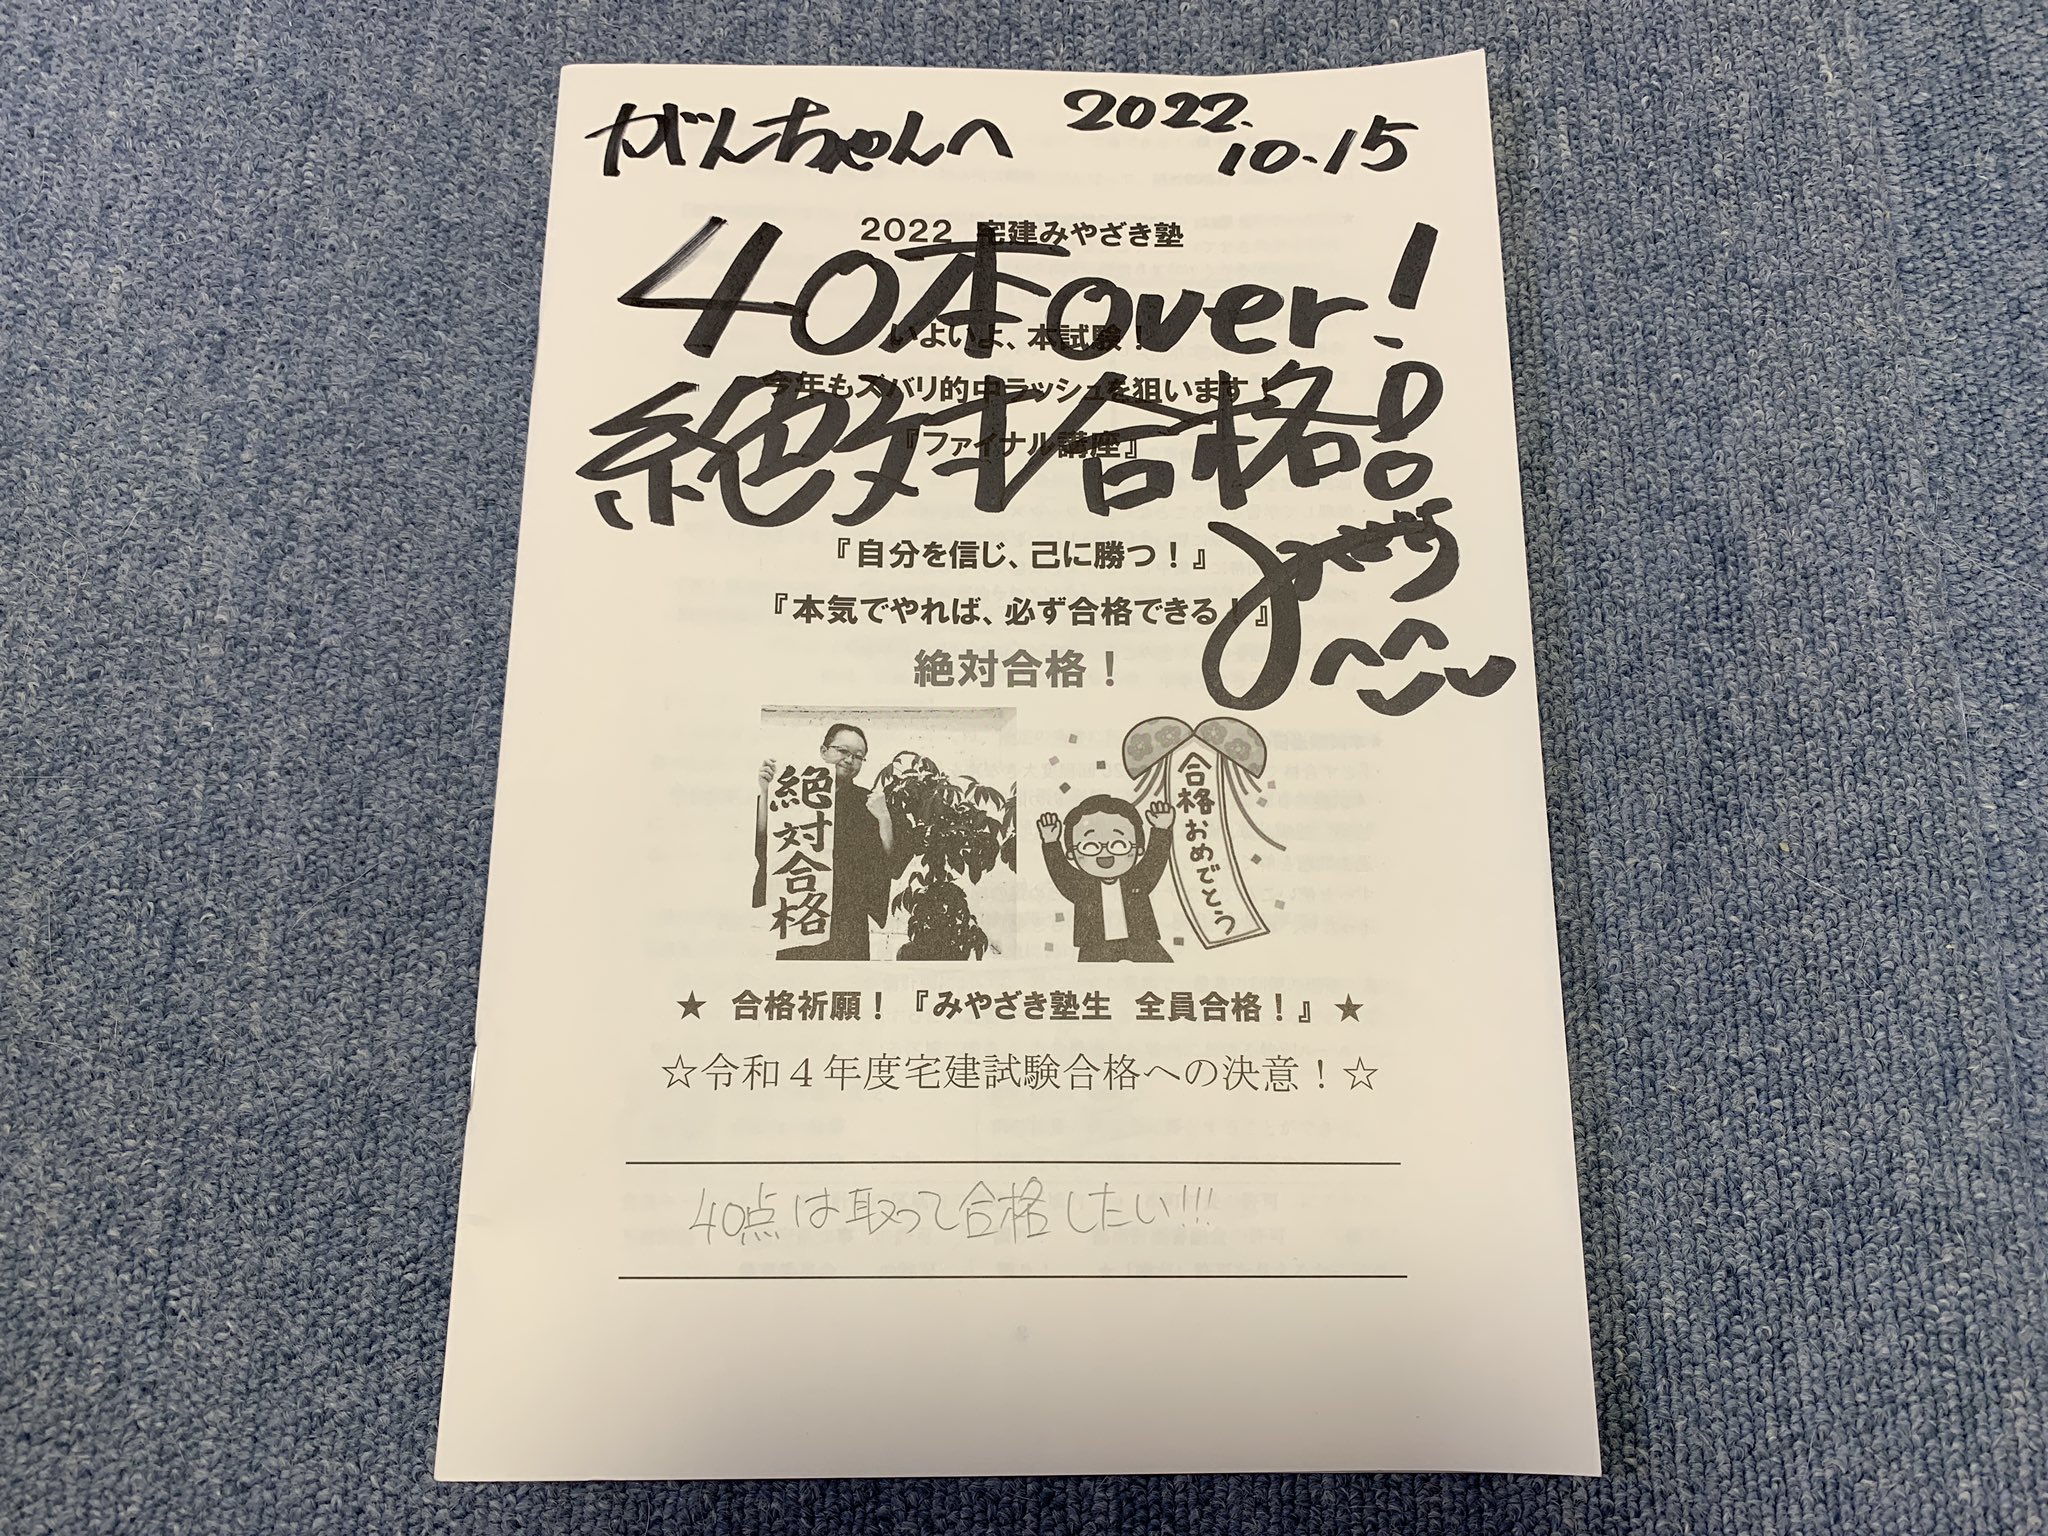 がんちゃんへ
2022.
10.15
2022 宅建みやざき塾
40本over!
いよいよ、本試験！
今年もズバリ的中ラッシュを狙います！
絶対合格!
『ファイナル講座』
『自分を信じ、己に勝つ！』
『本気でやれば、必ず合格できる！』
絶対合格！
絶対合格
合格おめでとう
★ 合格祈願！『みやざき塾生 全員合格！』★
☆令和４年度宅建試験合格への決意！☆
40点は取って合格したい!!!